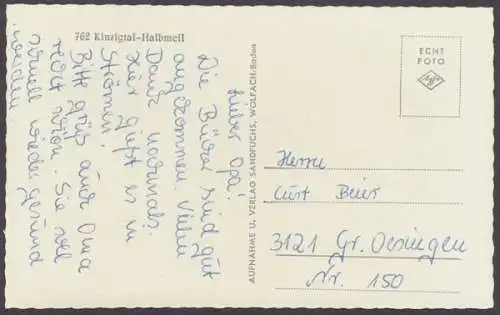 762 Kinzigtal-Halbmeil
Lieber Opa!
Die Bücher sind gut
angekommen. Vielen
Dank nochmals.
Hier gießt es in
Strömen!
Bitte grüß auch Oma
recht schön. Sie soll
schnell wieder gesund
werden.
AUFNAHME U. VERLAG SANDFUCHS, WOLFACH-Baden
ECHT
FOTO
Agfa
Herrn
Curt Beier
3121 Gr. Oesingen
Nr. 150